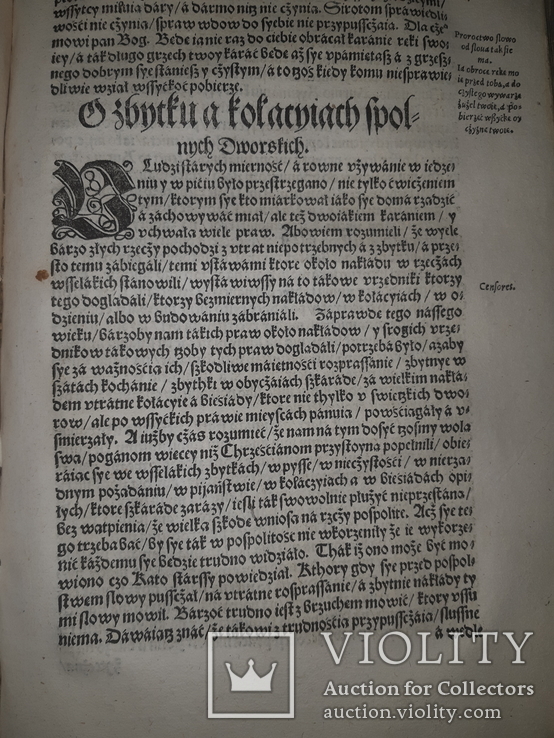 wssytcy miłuią dary/ á dármo nitz nie cżynia. Sirotom spráwiedli
wości nie cżynia/ spraw wdow do syebie nie przypusscżáia. Dla cże°
mowi pan Bog. Bede ia nie raz do ciebie obracał karánie reki swo-
iey/ á ták długo grzech twoy karáć bede áż sye vpámietasz á z grzesz-
nego dobrym sye stániesz y cżystym/ á to toż kiedy komu niesprawie
dliwie wziął wssyćkoć pobierze.
O zbytku a kolacyiach spol-
nych Dworskich.
V Ludzi starych mierność/ á rowne vżywánie w iedze-
niu y w pićiu było przestrzegano/ nie tylko ćwicżeniem
tym/ ktorym sye kto miárkował iáko sye doma rządzić
á záchowywáć miał/ ale też dwoiákiem karániem/ y
vchwała wiele praw. Abowiem rozumieli/ że wyele
bárzo złych rzecży pochodzi z vtrat niepotrzebnych á z zbytku/ á prze-
sto temu zábiegáli/ temi vstáwámi ktore około nákłádu w rzecżách
wsselákich stánowili/ wystáwiwssy ná to tákowe vrzedniki ktorzy
tego dogladáli/ ktorzy bezmiernych nákłádow/ w kolácyiách/ w o-
dzieniu/ álbo w budowániu zábraniáli. Záprawde tego nássego
wieku/ bárzoby nam tákich praw około nákłádow/ y srogich vrze-
dnikow tákowych tzoby tych praw dogladáli/ potrzebá było/ áżáby
sye zá ważnościa ich/ szkodliwe máietności rozprássánie/ zbytnye w
szátách kochánie/ zbythki w obycżáiách szkáráde/ zá wielkim nákłá-
dem vtrátne kolácyie á biesiády/ ktore nie thylko v świetzkich dwo-
row/ ále po wssyćkich práwie mieyscách pánuia/ powściagáły á v-
śmierzáły. A iużby cżás rozumieć/ że nam ná tym dosyć tzosmy wołá
swa/ pogánom wiecey niż Chrześciánom przystoyna popełnili/ obie-
ráiac sye we wsselákich zbytkách/ w pysse/ w niecżystości/ w nierza-
dnym pożadániu/ w pijáństwie/ w kolácyiách á w biesiádách opi-
łych/ ktore szkáráde zárázy/ iesli ták swowolnie płużyć nieprzestána/
bez watpienia/ że wielka szkode wniosa ná rzecży pospolite. Acż sye te-
go trzebá bać/ by sye ták w pospolitość nie wkorzeniły że ie wykorze-
nić káżdemu sye bedzie trudno widziáło. Thák iż ono może być mo-
wiono czo Káto stárssy powiedział. Kthory gdy sye przed pospol-
stwem słowy pusscżał/ ná vtrátne rosprassánie/ á zbytnie nákłády ty
mi słowy mowił. Bárzoć trudno iest z brzuchem mowić/ ktory vssu
niema. Dáwáiatz znáć/ że tákowi z trudnościa przypusscżáia/ słussne
á wedle
Proroctwo słowo
od słowá ták sie
ma.
Ia obroce reke mo
ie przed tobą, á do
cżystego wywarze
żużel twoie, á po-
bierzeć wszytke cy
cżyżne twoie.
Censores.
VIOLITY
Auction for Collectors
auction.violity.com